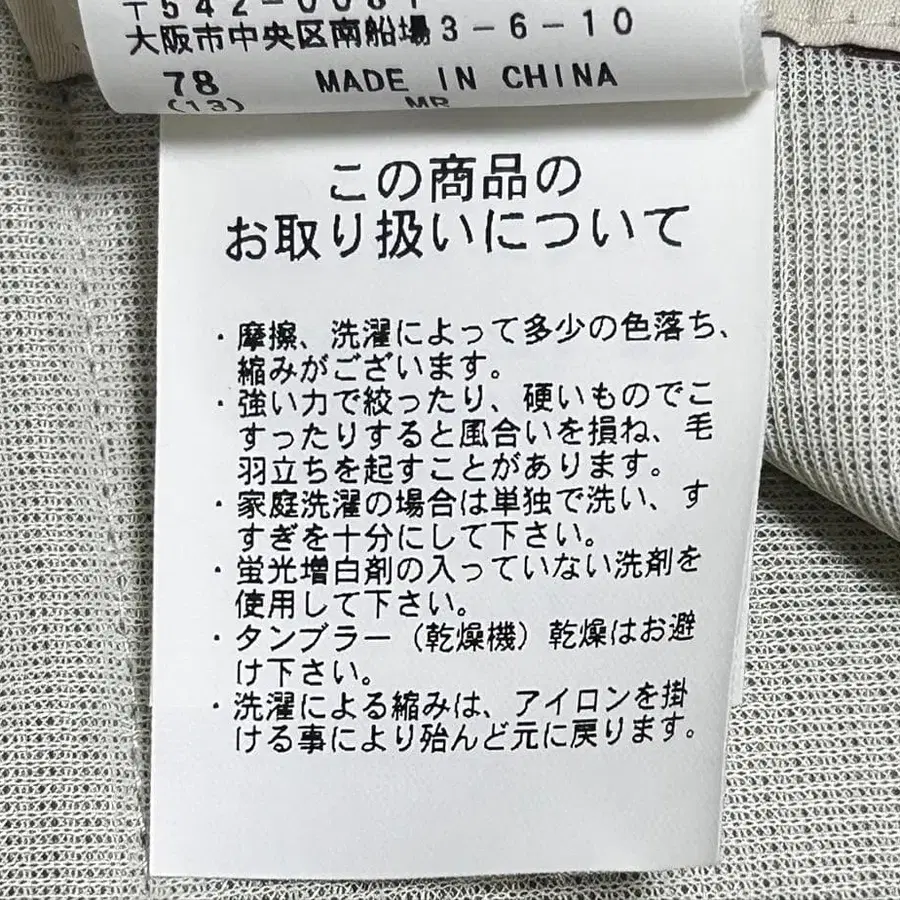 〒542-0081
大阪市中央区南船場3-6-10
78 MADE IN CHINA
(13) MR
この商品の
お取り扱いについて
・摩擦、洗濯によって多少の色落ち、
縮みがございます。
・強い力で絞ったり、硬いものでこ
すったりすると風合いを損ね、毛
羽立ちを起すことがあります。
・家庭洗濯の場合は単独で洗い、す
すぎを十分にして下さい。
・蛍光増白剤の入っていない洗剤を
使用して下さい。
・タンブラー（乾燥機）乾燥はお避
け下さい。
・洗濯による縮みは、アイロンを掛
ける事により殆んど元に戻ります。